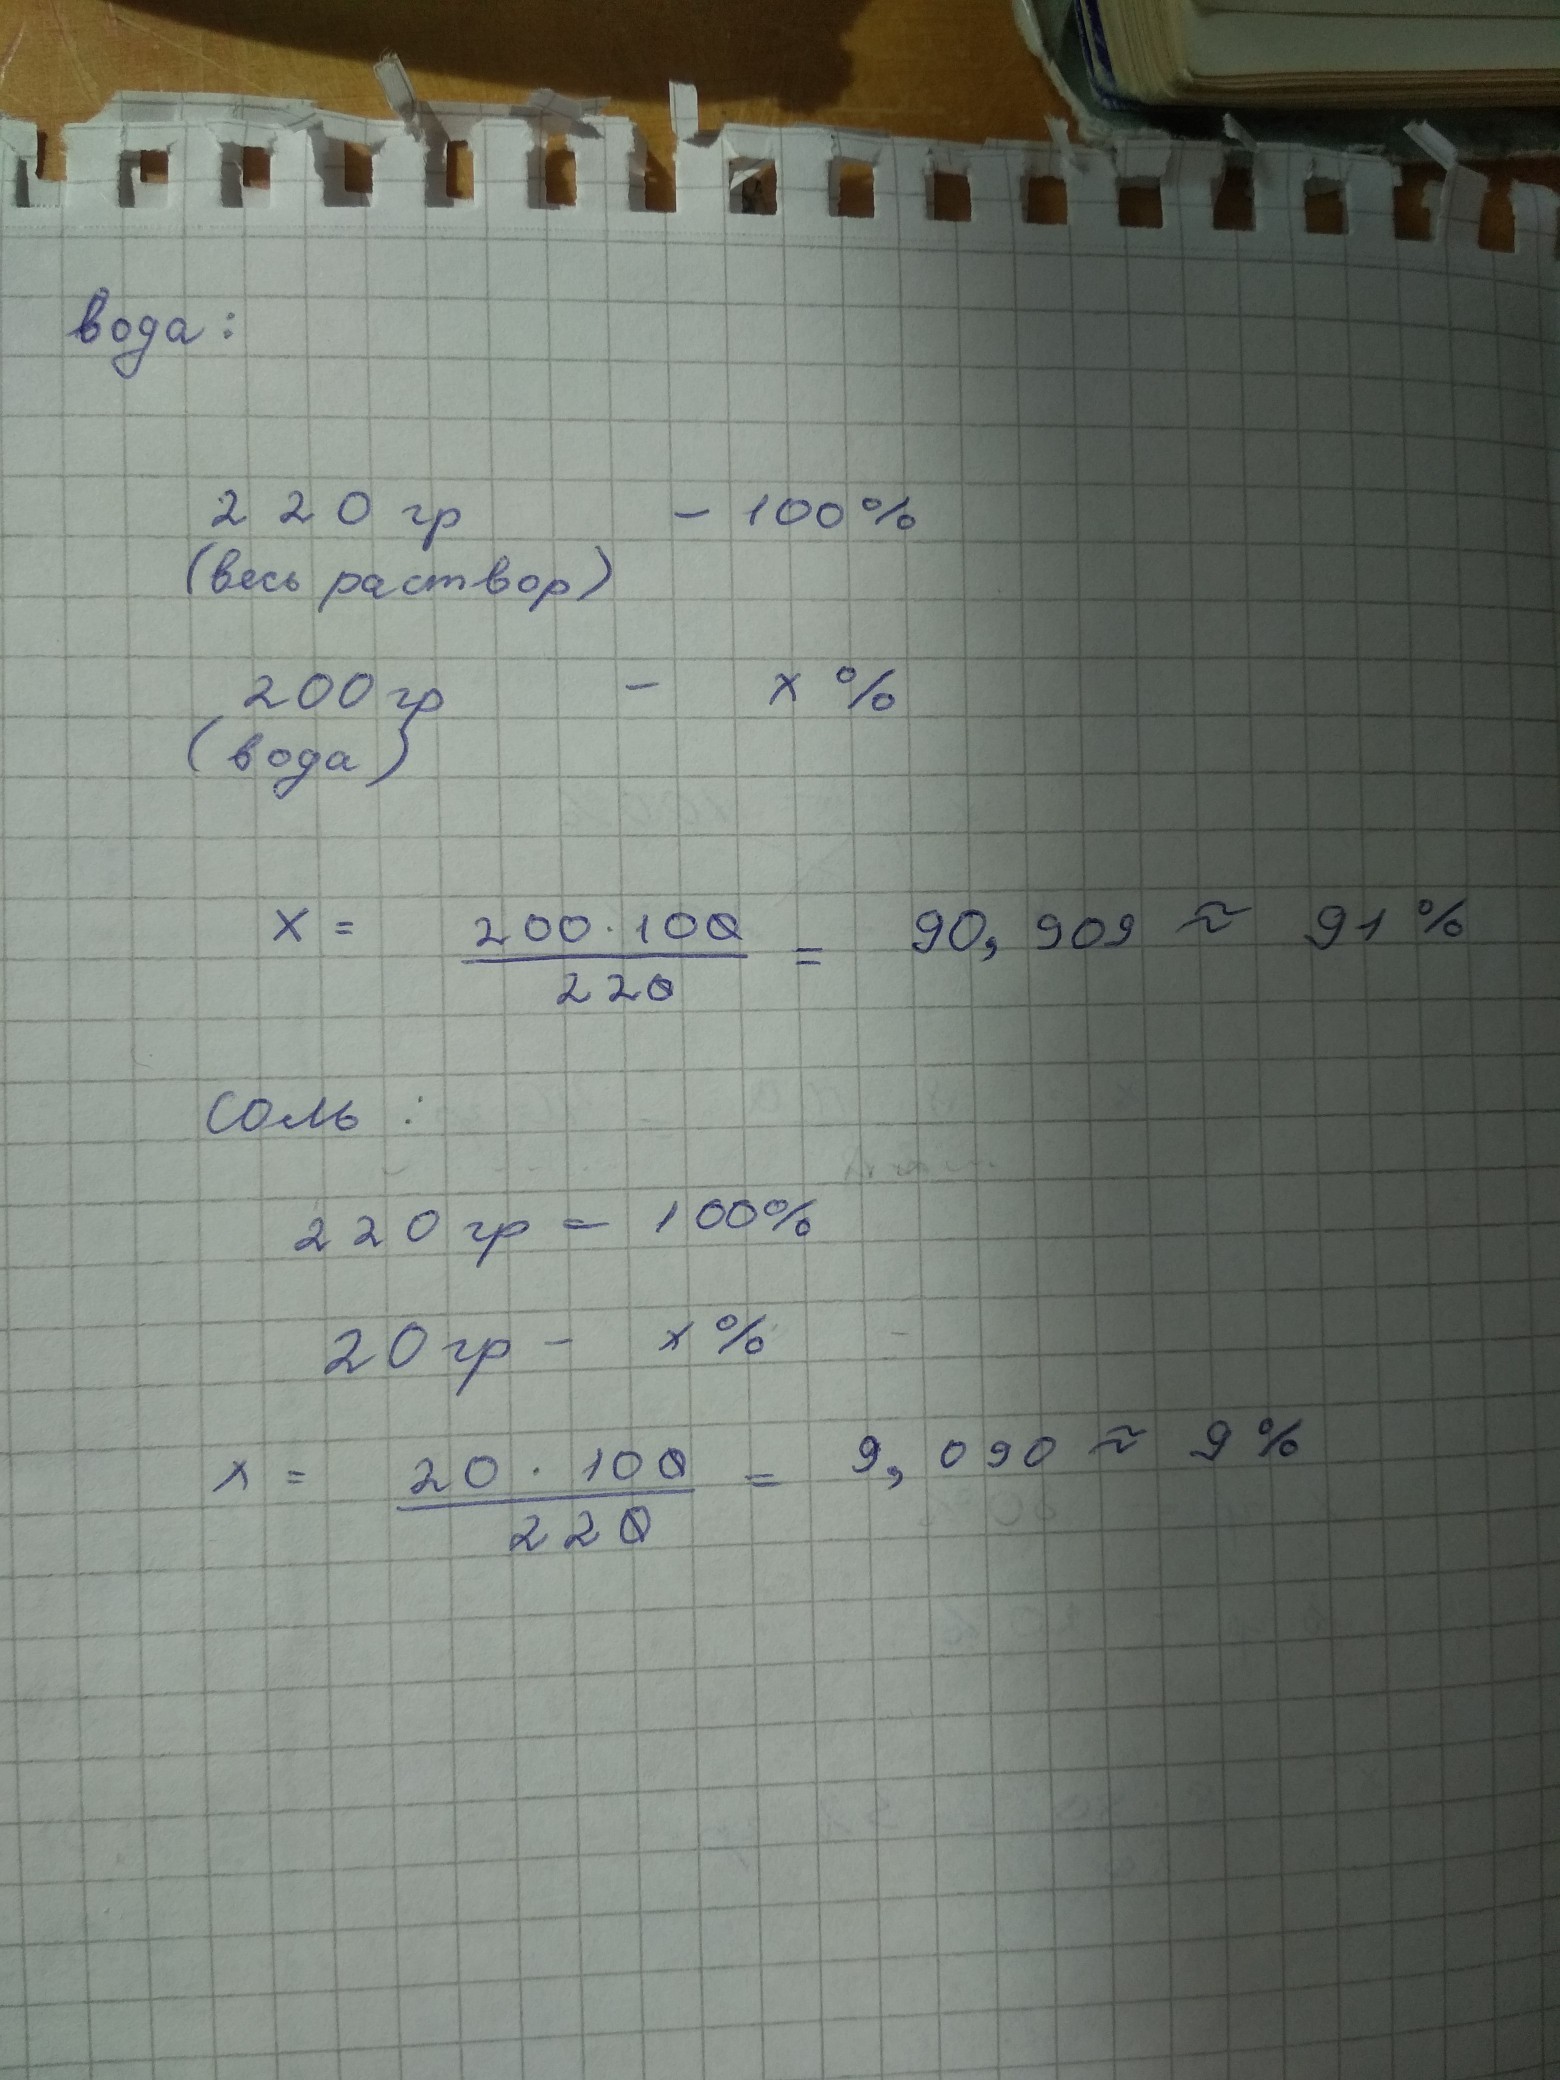 вода:
220 гр - 100%
(весь раствор)
200 гр - x %
(вода)
x = 200 · 100 / 220 = 90,909 ≈ 91 %
Соль :
220 гр - 100%
20 гр - x %
x = 20 · 100 / 220 = 9,090 ≈ 9 %